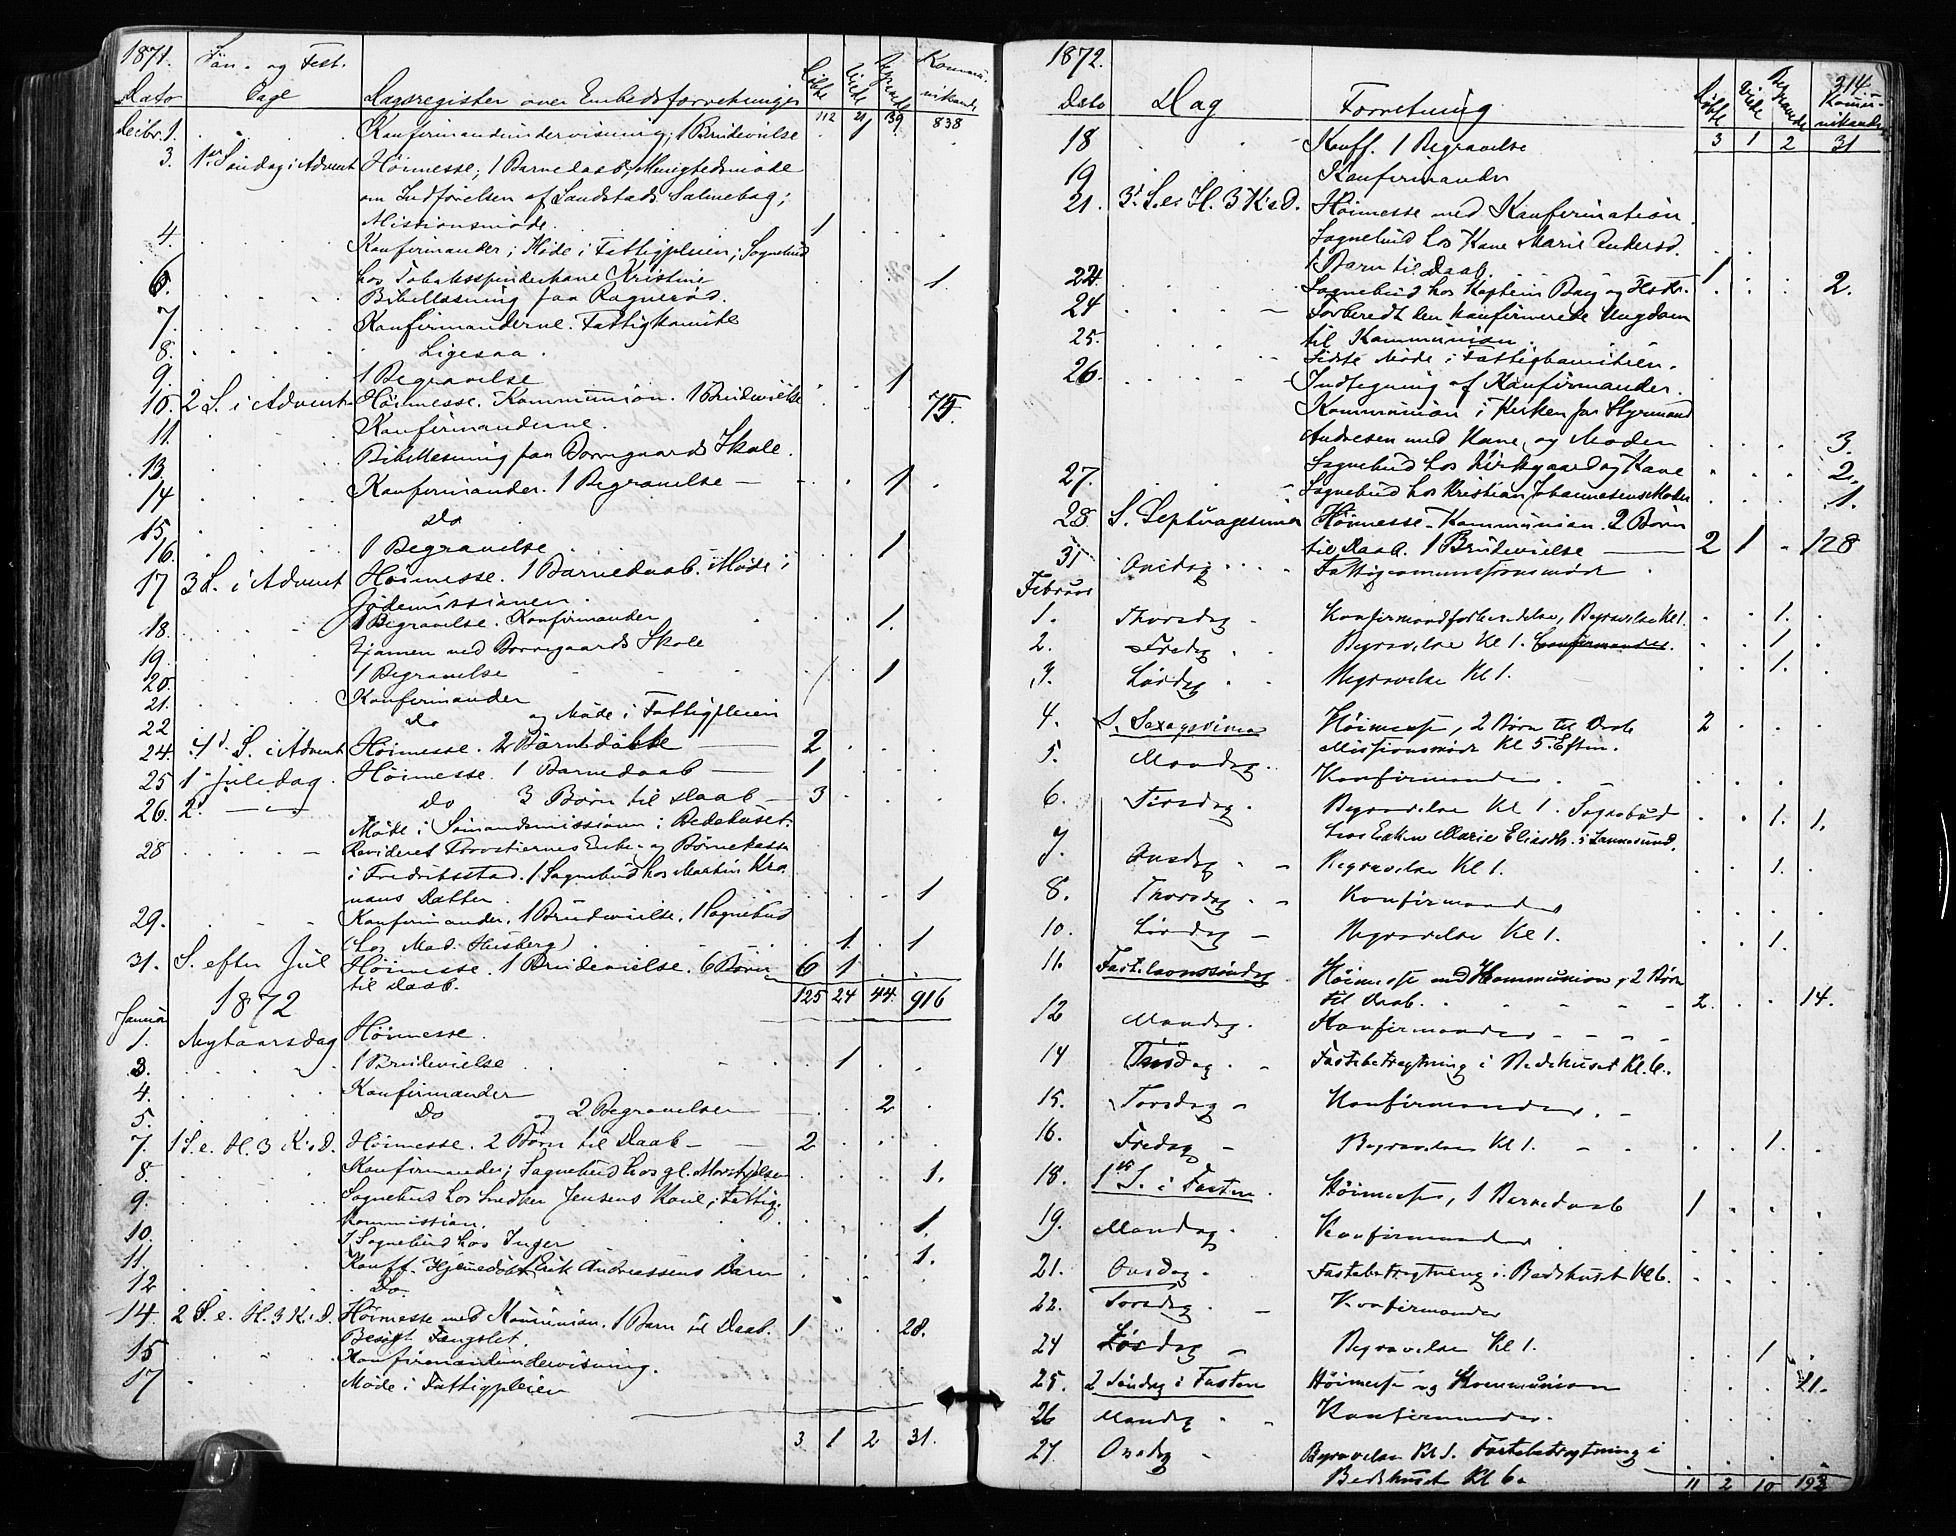 1871. Søn- og Fest-
Dato Dage Dagsregister over Embedsforretninger Døbte Viede Begravede Kommunikante
112 21 39 838
Decbr. 1. Konfirmandundervisning; 1 Brudevielse 1
3. 1ste Søndag i Advent Høimesse; 1 Barnedaab; Menighedsmøde
om Indførelsen af Landstads Salmebog;
Missionsmøde. 1
4. Konfirmander; Møde i Fattigpleien; Sognebud
hos Tobaksspinderkone Kristine 1
6. Bibellæsning paa
7. Konfirmanderne. Fattigkomite
8. Ligesaa.
9. 1 Begravelse 1
10. 2 S. i Advent Høimesse. Kommunion. 1 Brudevielse 75.
11. Konfirmanderne.
13. Bibellæsning paa Borregaards Skole.
14 Konfirmander. 1 Begravelse — 1
15. Do
16. 1 Begravelse 1
17 3 S. i Advent Høimesse. 1 Barnedaab. Møde i
Jødemissionen.
18. 1 Begravelse. Konfirmander 1
19. Examen ved Borregaards Skole
20. 1 Begravelse 1
21. Konfirmander
22 Do og Møde i Fattigpleien
24. 4d. S. i Advent Høimesse. 2 Barnedaab 2
25 1 Juledag. Høimesse. 1 Barnedaab — 1
26. 2. — " — Do 3 Børn til Daab — 3
Møde i Sømandsmissionen i Bedehuset.
28 Revideret Provstiernes Enke- og Børnekasse
i Fredriksstad. 1 Sognebud hos Martin
Datter. 1
29. Konfirmander. 1 Brudevielse. 1 Sognebud
(hos Mad. Heisberg) 1 1
31. S. efter Jul Høimesse. 1 Brudevielse. 6 Børn 6 1
til Daab.
125 24 44 916
1872
Januar
1. Nytaarsdag Høimesse.
3. 1 Brudevielse 1
4. Konfirmander
5. Do og 2 Begravelser 2
7. 1 S. e. H. 3 K. D. Høimesse. 2 Børn til Daab — 2
8. Konfirmander; Sognebud hos gl. 1.
9. Sognebud hos Snedker Jensens Kone; Fattig-
kommission. 1.
10. 1 Sognebud hos Inger 1.
11. Konff. Hjemmedøbt Erik Andreassens Barn
12 Do
14. 2 S. e. H. 3 K. D. Høimesse med Kommunion. 1 Barn til Daab. 1 28.
Besøgt Fængslet.
15 Konfirmandundervisning.
17 Møde i Fattigpleien
3 1 2 31.
1872. 314.
Dato Dag Forretning Døbte Viede Begravede Kommunikanter
3 1 2 31
18 Konff. 1 Begravelse
19 Konfirmander
21. 3d S. e. H. 3 K. D. Høimesse med Konfirmation.
Sognebud hos Kone Marie Andersd.
1 Barn til Daab. 1
22. Sognebud hos Kaptein Bay og Hstr. 2.
24 Forberedt den konfirmerede Ungdom
til Kommunion.
25. Sidste Møde i Fattigkomiteen.
26. Indtegning af Konfirmander.
Kommunion i Kirken for Styrmand
Andresen med Kone og Moder 3.
Sognebud hos Kirkgaard og Kone 2.
27. Sognebud hos Kristian Johannesens Moder 1.
28. S. Septuagesima Høimesse. Kommunion. 2 Børn
til Daab. 1 Brudevielse — 2 1 128
31 Onsdag Fattigcommissionsmøde
Februar
1. Thorsdag Konfirmandforberedelse, Begravelse Kl 1. 1.
2. Fredag Begravelse Kl 1. Confirmander. 1.
3. Lørdag Begravelse Kl 1. 1.
4. S. Sexagesima Høimesse, 2 Børn til Daab 2
Missionsmøde Kl 5. Eftm.
5. Mandag. Konfirmander.
6. Tirsdag. Begravelse Kl 1. Sognebud 1. 1.
hos Enken Marie Eliasdt. i Sannesund.
7. Onsdag Begravelse Kl 1. 1.
8. Thorsdag Konfirmander
10. Lørdag — Begravelse Kl 1. 1.
11. Fastelavnssøndag Høimesse med Kommunion, 2 Børn
til Daab. 2. 14.
12 Mandag. Konfirmander
14 Onsdag Fastebetragtning i Bedehuset Kl. 6.
15. Torsdag Konfirmander.
16. Fredag Begravelse Kl 1. 1.
18. 1ste S. i Fasten. Høimesse, 1 Barnedaab 1
19. Mandag Konfirmander
21. Onsdag. Fastebetragtning i Bedehuset Kl 6.
22. Torsdag. Konfirmander
24 Lørdag Begravelse Kl 1. 1
25. 2 Søndag i Fasten Høimesse og Kommunion 21.
26 Mandag Konfirmander.
27. Onsdag Begravelse Kl 1. Fastebetragtning i
Bedehuset Kl 6.
11 2 10 193